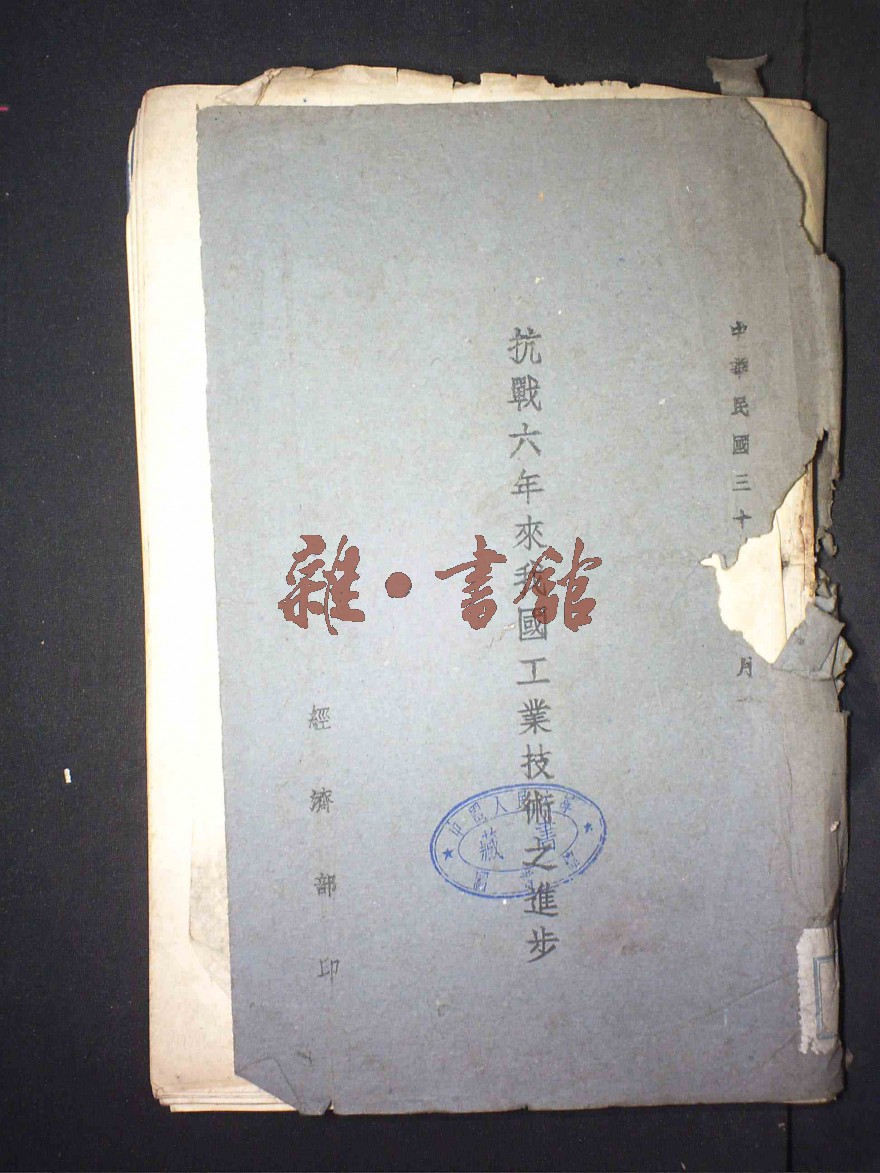 中華民國三十
月
抗戰六年來我國工業技術之進步
經濟部印
雜·書館
中國人民大學
藏書
圖書館